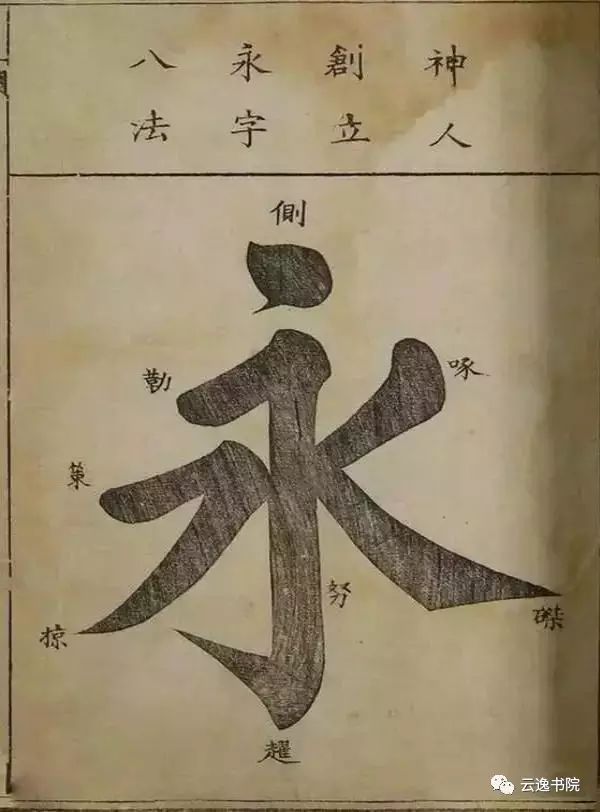 神人
創立
永字
八法
側
勒
啄
策
永
努
掠
磔
趯
云逸书院